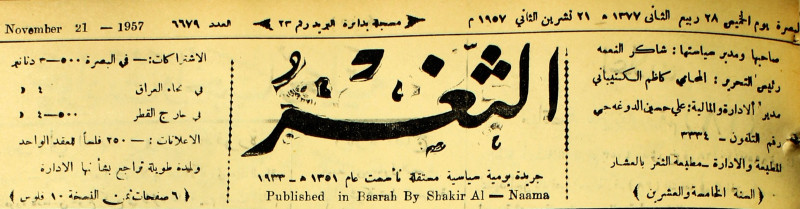 البصرة يوم الخميس ٢٨ ربيع الثاني ١٣٧٧ ه‍ ـ ٢١ تشرين الثاني ١٩٥٧ م
مسجلة بدائرة البريد رقم ٢٣
العدد ٦٦٧٩
November 21 — 1957
صاحبها ومدير سياستها : شاكر النعمه
رئيس التحرير : المحامي كاظم
مدير الادارة والمالية : علي حسين الدوغه جي
رقم التلفون - ٣٣٣٤
المطبعة والادارة - مطبعة الثغر بالعشار
( السنة الخامسة والعشرين )
الثغر
جريدة يومية سياسية مستقلة تأسست عام ١٣٥١ ه‍ - ١٩٣٣
Published in Basrah By Shakir Al — Naama
الاشتراكات :— في البصرة ٥٠٠-٣ دنانير
في انحاء العراق ٤ د
في خارج القطر ٥٠٠-٤ د
الاعلانات :— ٢٥٠ فلساً للعقد الواحد
ولمدة طويلة تراجع بشأنها الادارة
( ٦ صفحات ثمن النسخة ١٠ فلوس )